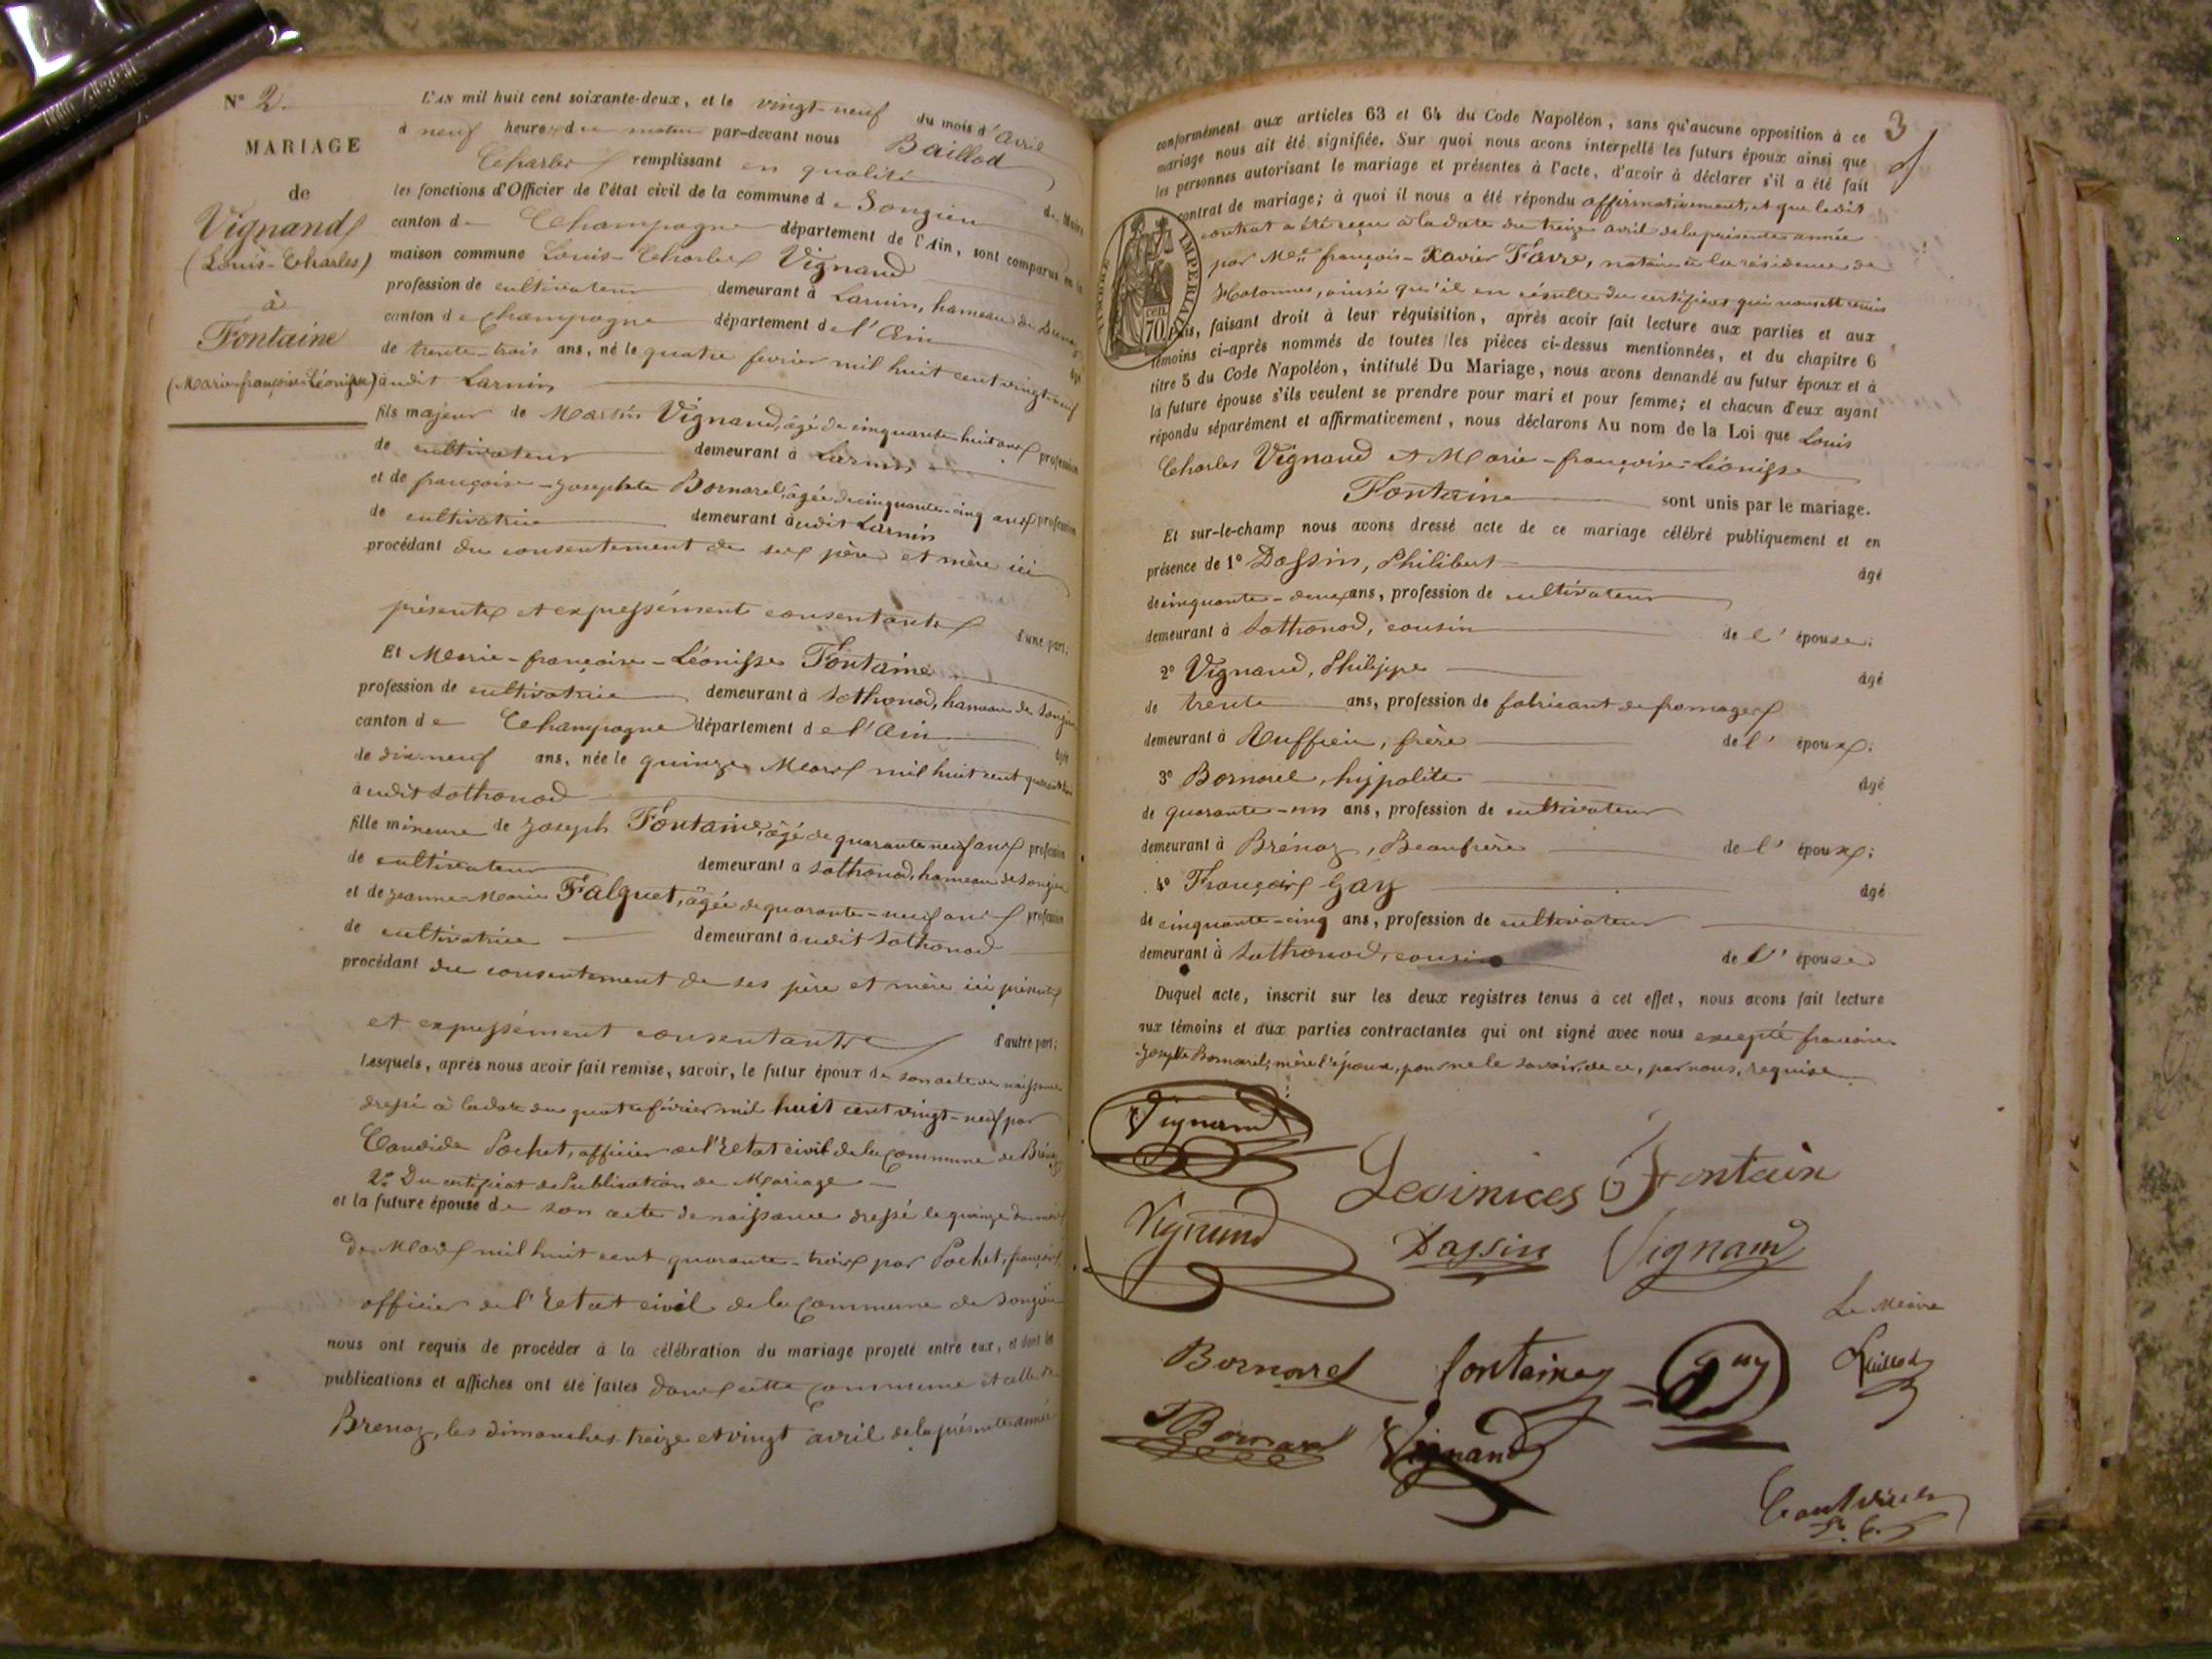 N° 2.
MARIAGE
de
Vignand
(Louis-Charles)
à
Fontaine
(Marie françoise Léonisse)
L'AN mil huit cent soixante-deux, et le vingt-neuf du mois d'avril
à neuf heures du matin par-devant nous Baillod
Charles remplissant en qualité de Maire
les fonctions d'Officier de l'état civil de la commune de Songieu
canton de Champagne département de l'Ain, sont comparus en la
maison commune Louis-Charles Vignand
profession de cultivateur demeurant à Larnin, hameau de
canton de Champagne département de l'Ain âgé
de trente-trois ans, né le quatre février mil huit cent vingt-neuf
audit Larnin
fils majeur de Martin Vignand, âgé de cinquante huit ans profession
de cultivateur demeurant à Larnin
et de françoise-Josephte Bornarel, âgée de cinquante-cinq ans profession
de cultivatrice demeurant audit Larnin
procédant du consentement de ses père et mère ici
présents et expressément consentants d'une part;
Et Marie-françoise-Léonisse Fontaine
profession de cultivatrice demeurant à Sothonod, hameau de Songieu
canton de Champagne département de l'Ain âgée
de dix-neuf ans, née le quinze Mars mil huit cent quarante trois
audit Sothonod
fille mineure de Joseph Fontaine, âgé de quarante neuf ans profession
de cultivateur demeurant à Sothonod, hameau de Songieu
et de Jeanne-Marie Falquet, âgée de quarante-neuf ans profession
de cultivatrice demeurant audit Sothonod
procédant du consentement de ses père et mère ici présents
et expressément consentants d'autre part;
Lesquels, après nous avoir fait remise, savoir, le futur époux de son acte de naissance
dressé à la date du quatre février mil huit cent vingt-neuf par
Candide Pochet, officier de l'Etat civil de la Commune de Brénaz
2° Du certificat de Publication de Mariage
et la future épouse de son acte de naissance dressé le quinze du mois
de Mars mil huit cent quarante-trois par Pochet, françois
officier de l'Etat civil de la Commune de Songieu
nous ont requis de procéder à la célébration du mariage projeté entre eux, et dont les
publications et affiches ont été faites dans cette commune et celle de
Brenaz, les dimanches treize et vingt avril de la présente année
3
conformément aux articles 63 et 64 du Code Napoléon, sans qu'aucune opposition à ce
mariage nous ait été signifiée. Sur quoi nous avons interpellé les futurs époux ainsi que
les personnes autorisant le mariage et présentes à l'acte, d'avoir à déclarer s'il a été fait
contrat de mariage; à quoi il nous a été répondu affirmativement, et que ledit
contrat a été reçu à la date du treize avril de la présente année
par Me françois-Xavier Favre, notaire à la résidence de
Hotonnes, ainsi qu'il en résulte du certificat qui nous est remis
TIMBRE IMPERIAL
70 cen
Puis, faisant droit à leur réquisition, après avoir fait lecture aux parties et aux
témoins ci-après nommés de toutes les pièces ci-dessus mentionnées, et du chapitre 6
titre 5 du Code Napoléon, intitulé Du Mariage, nous avons demandé au futur époux et à
la future épouse s'ils veulent se prendre pour mari et pour femme; et chacun d'eux ayant
répondu séparément et affirmativement, nous déclarons Au nom de la Loi que Louis
Charles Vignand et Marie-françoise-Léonisse
Fontaine sont unis par le mariage.
Et sur-le-champ nous avons dressé acte de ce mariage célébré publiquement et en
présence de 1° Dassin, Philibert âgé
de cinquante-deux ans, profession de cultivateur
demeurant à Sothonod, cousin de l'épouse;
2° Vignand, Philippe âgé
de trente ans, profession de fabricant de fromages
demeurant à Ruffieu, frère de l'époux;
3° Bornarel, hyppolite âgé
de quarante-un ans, profession de cultivateur
demeurant à Brénaz, Beaufrère de l'époux;
4° François Gay âgé
de cinquante-cinq ans, profession de cultivateur
demeurant à Sothonod, cousin de l'épouse
Duquel acte, inscrit sur les deux registres tenus à cet effet, nous avons fait lecture
aux témoins et aux parties contractantes qui ont signé avec nous excepté françoise
Josephte Bornarel, mère l'époux, pour ne le savoir, de ce, par nous, requise
Vignand
Leoinices Fontain
Vignand
Dassin
Vignand
Le Maire
Bornarel
fontaine
Gay
Baillod
Bornarel
Vignand